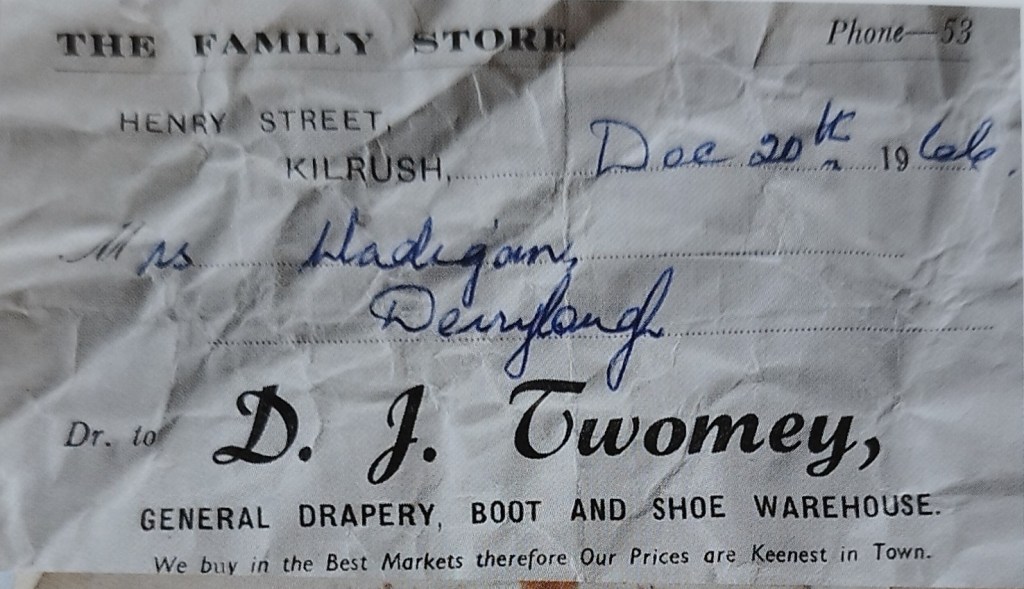 THE FAMILY STORE. Phone—53
HENRY STREET,
KILRUSH, Dec 20th 1966.
Mrs Hadigan,
Derrylough
Dr. to D. J. Twomey,
GENERAL DRAPERY, BOOT AND SHOE WAREHOUSE.
We buy in the Best Markets therefore Our Prices are Keenest in Town.